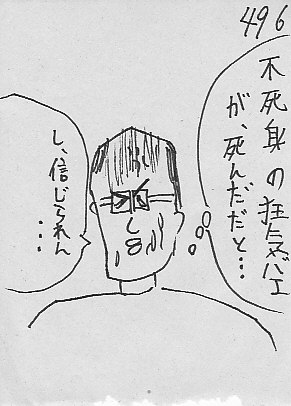 496
不死身の狂気バエ
が、死んだだと…
し、信じられん
…